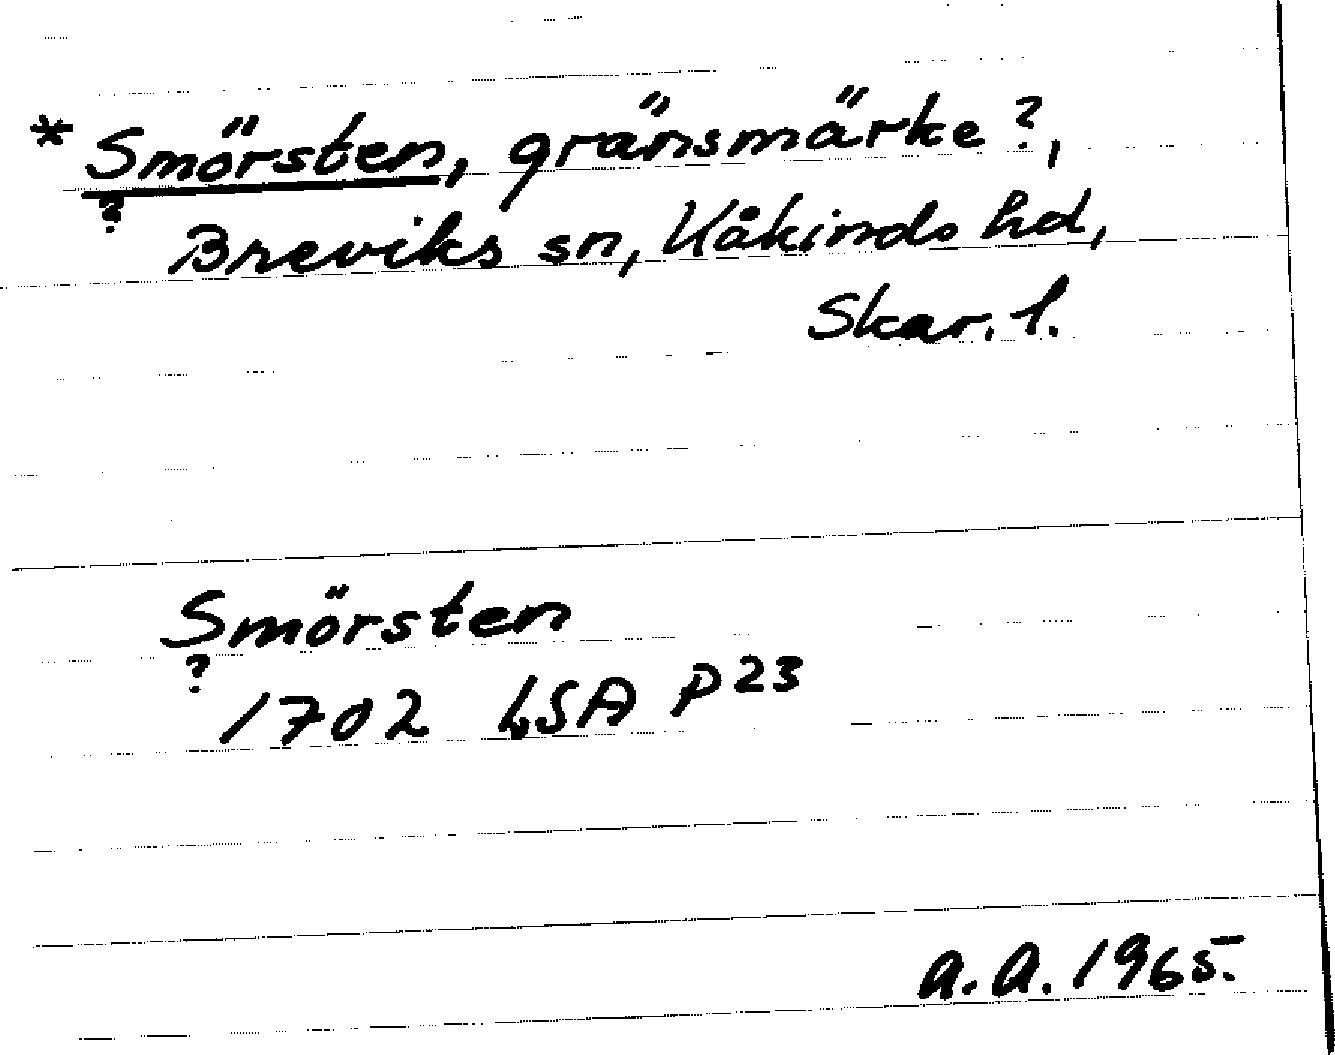 * Smörsten, gränsmärke?,
? Breviks sn, Kåkinds hd,
Skar. l.
Smörsten
?
1702 LSA P23
A.A. 1965.